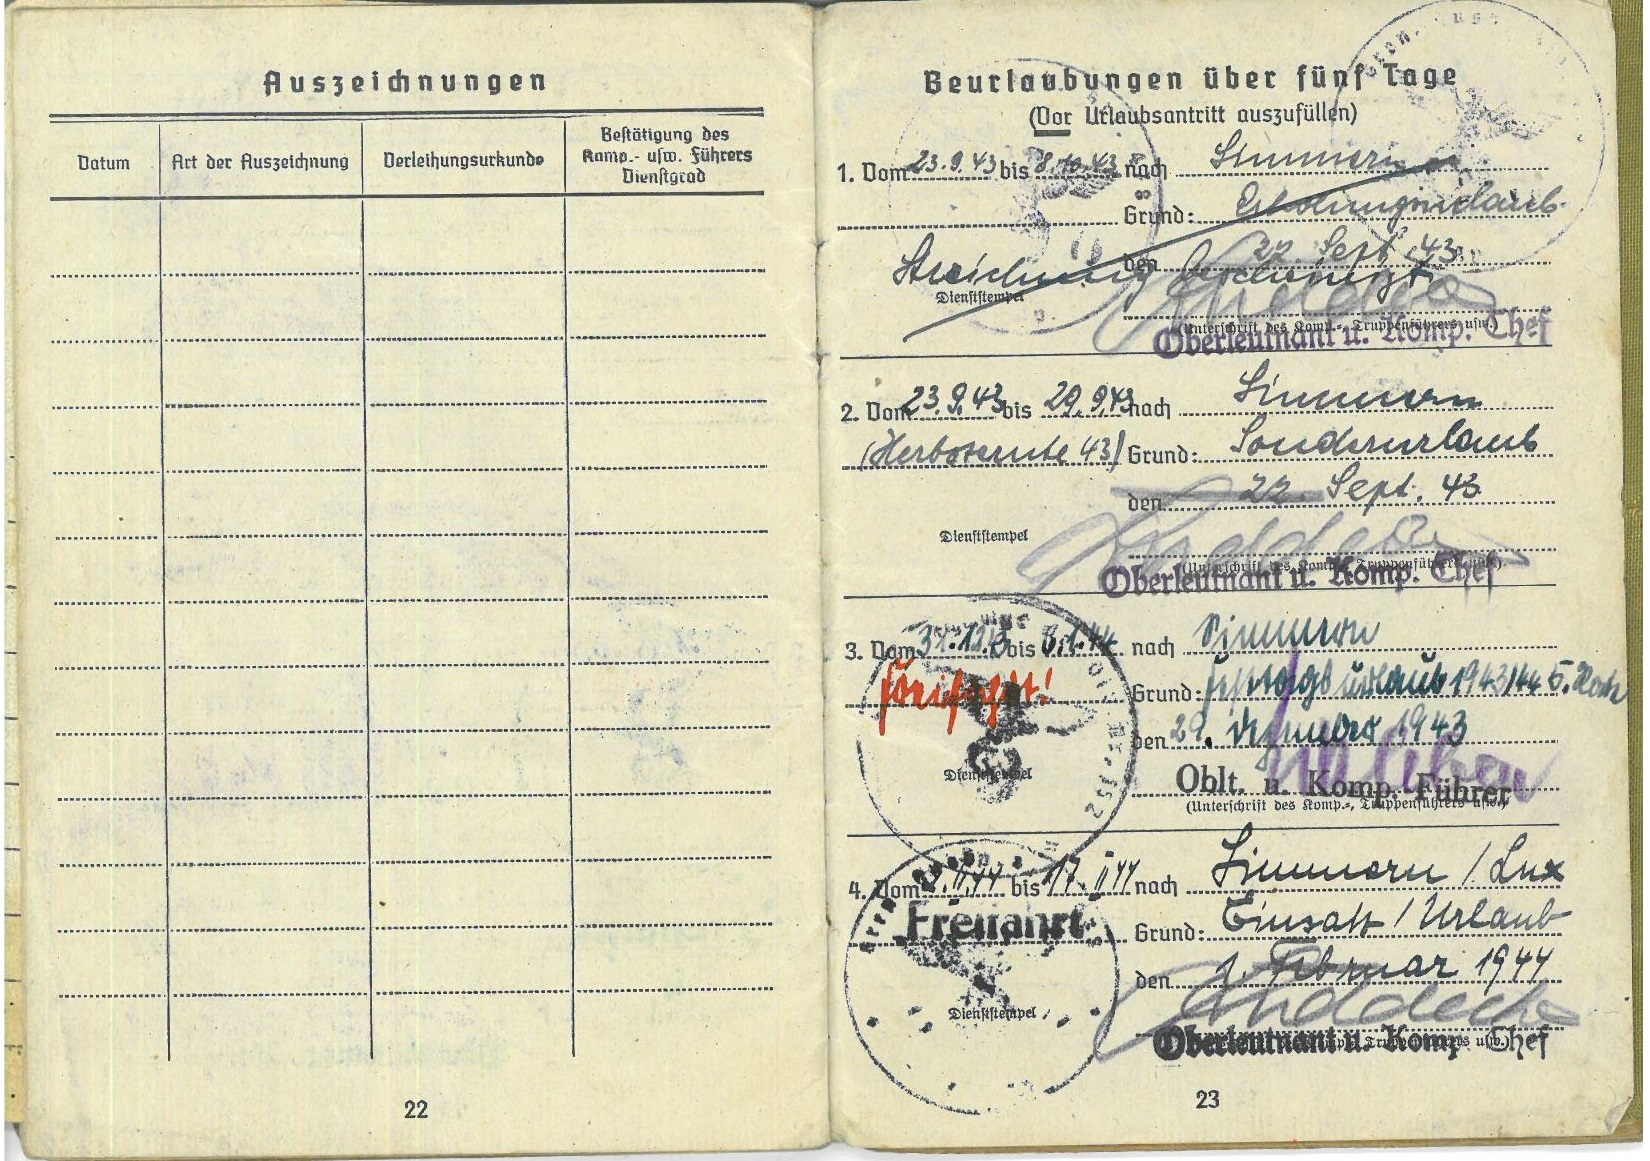 Auszeichnungen
Datum
Art der Auszeichnung
Verleihungsurkunde
Bestätigung des
Komp.- usw. Führers
Dienstgrad
22
Beurlaubungen über fünf Tage
(Vor Urlaubsantritt auszufüllen)
1. Vom 23.9.43 bis 8.10.43 nach Simmern
Grund: Erholungsurlaub
den 22. Sept. 43
Streichung bescheinigt
Dienststempel
(Unterschrift des Komp.-, Truppenführers usw.)
Oberleutnant u. Komp. Chef
2. Vom 23.9.43 bis 29.9.43 nach Simmern
(Herbsternte 43) Grund: Sonderurlaub
den 22. Sept. 43
Dienststempel
(Unterschrift des Komp.-, Truppenführers usw.)
Oberleutnant u. Komp. Chef
3. Vom 31.12.43 bis 5.1.44 nach Simmern
Freifahrt! Grund: Festtagsurlaub 1943/44 5. Rate
den 29. Dezember 1943
Dienststempel
Oblt. u. Komp.-Führer
(Unterschrift des Komp.-, Truppenführers usw.)
4. Vom 2.II.44 bis 17.II.44 nach Simmern / Lux
Freifahrt Grund: Einsatz / Urlaub
den 1. Februar 1944
Dienststempel
Oberleutnant u. Komp. Chef
23